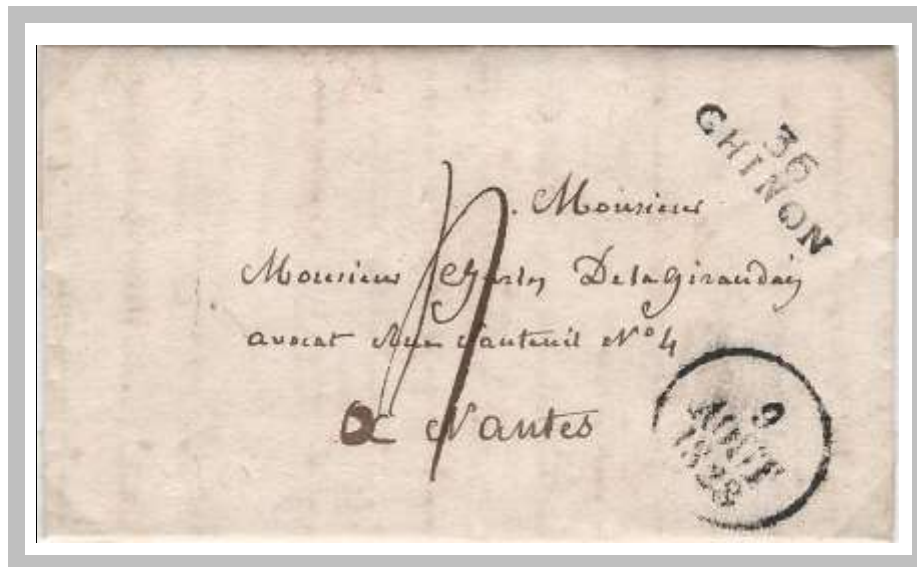 36
CHINON
Monsieur
Monsieur Delagiraudais
avocat Rue Santeuil N° 4
a Nantes
9
AOUT
1828